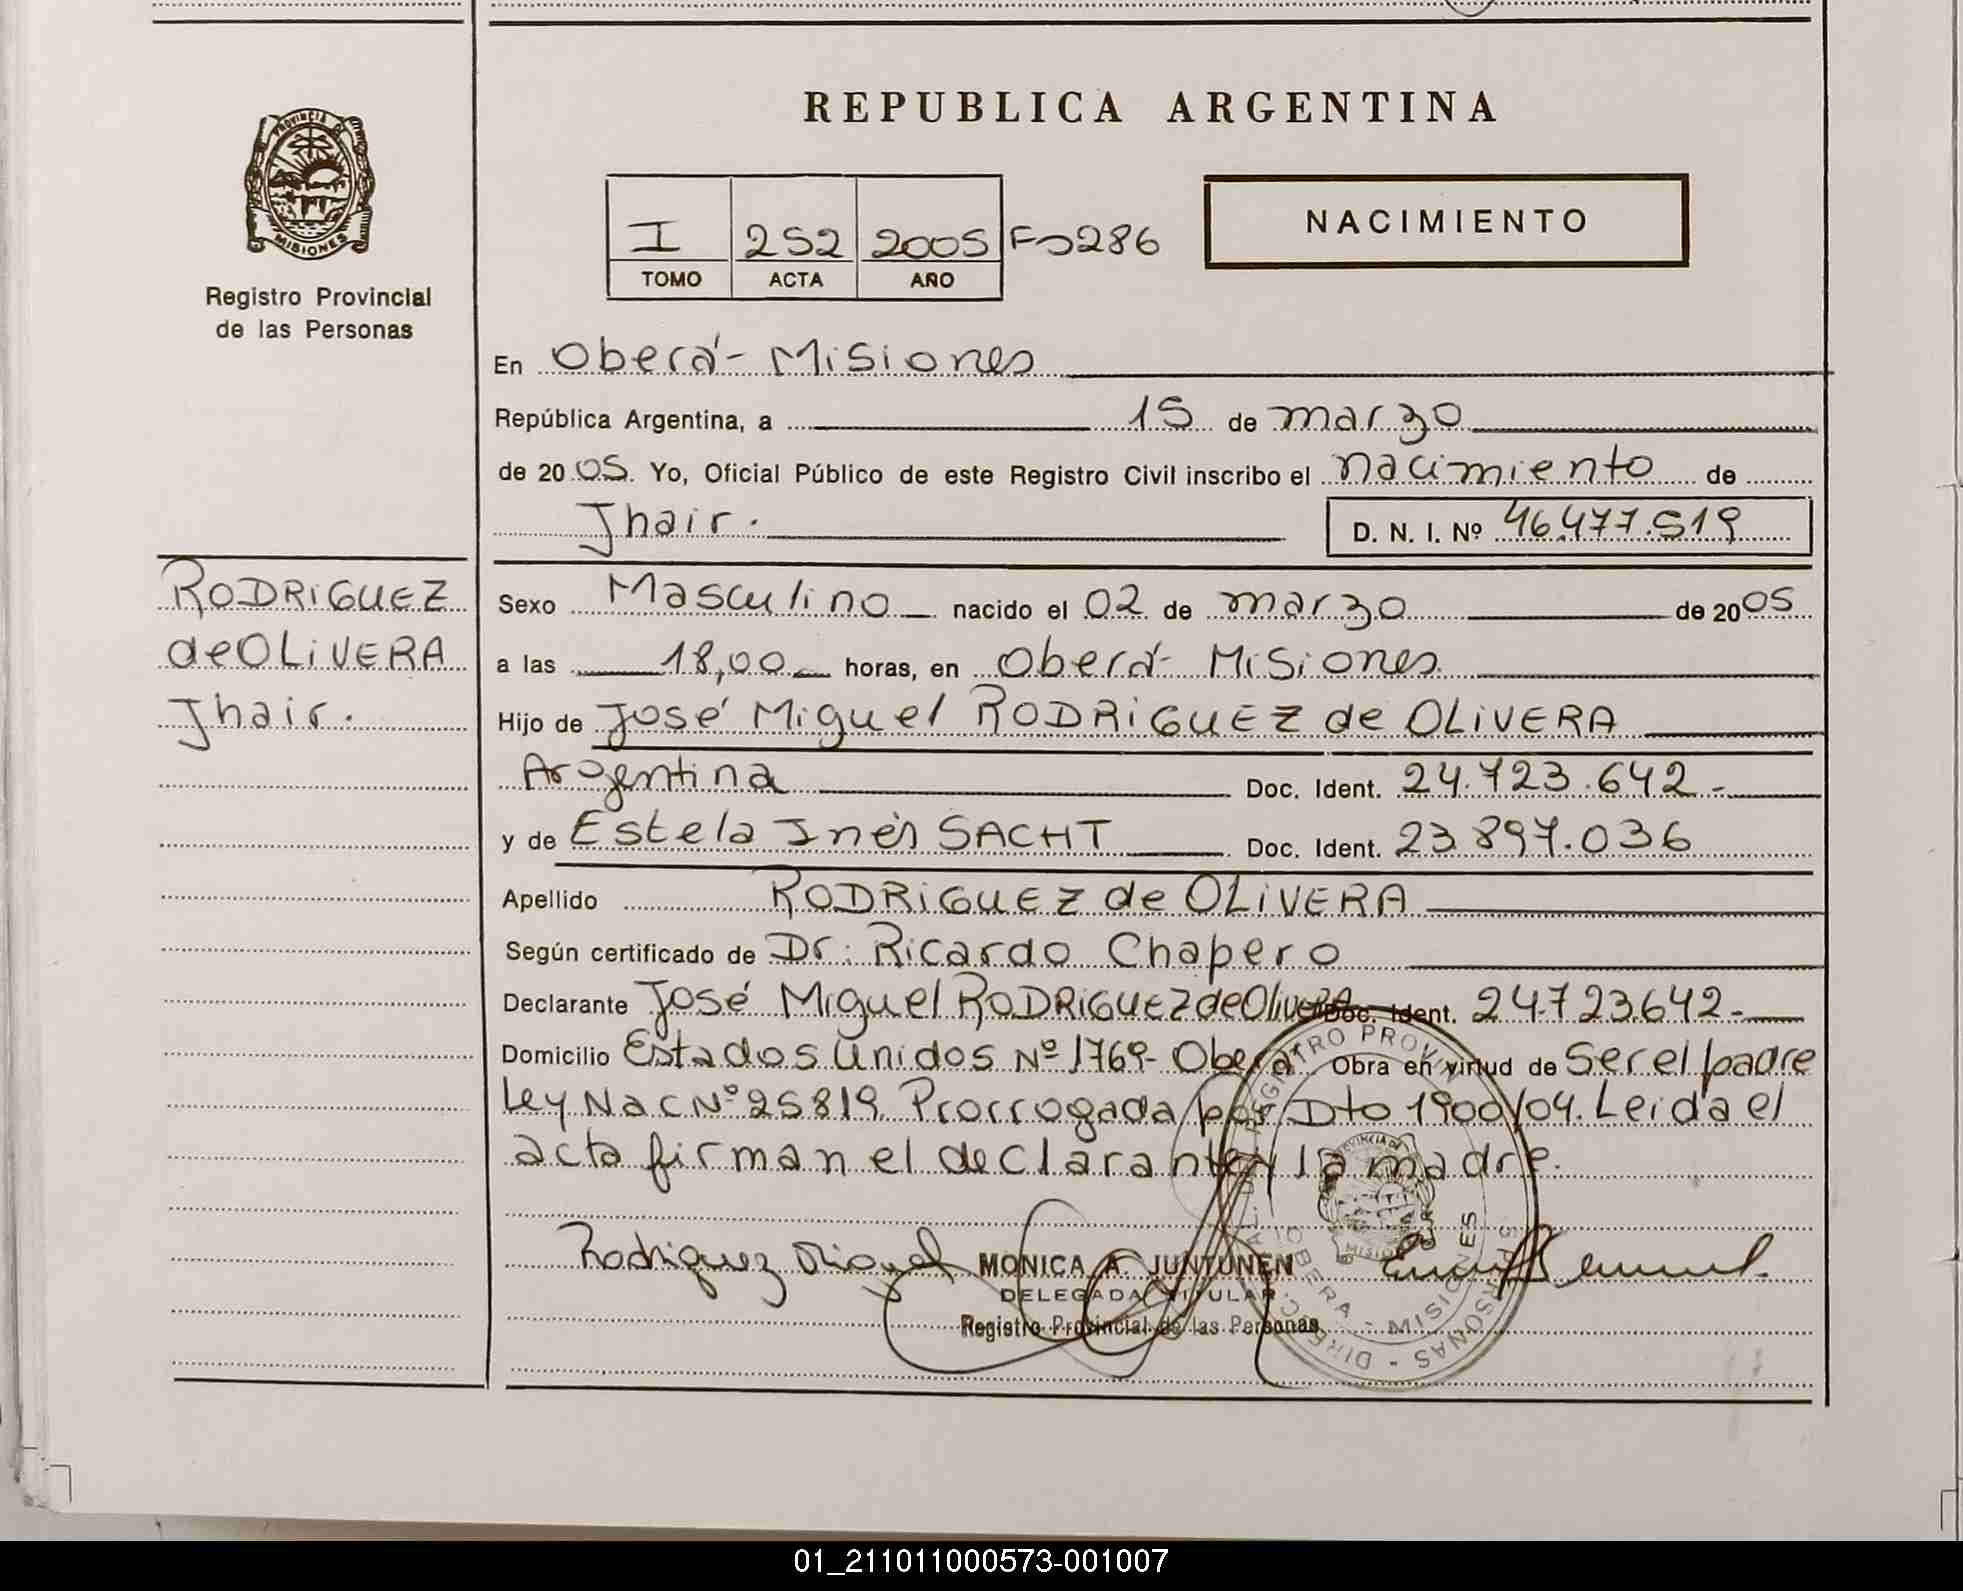 REPUBLICA ARGENTINA
PROVINCIA DE
MISIONES
Registro Provincial
de las Personas
NACIMIENTO
I 252 2005 Fº286
TOMO ACTA AÑO
En Oberá - Misiones
República Argentina, a 15 de marzo
de 2005. Yo, Oficial Público de este Registro Civil inscribo el nacimiento de
Jhair. D. N. I. Nº 46.477.519
RODRIGUEZ
de OLIVERA
Jhair.
Sexo Masculino nacido el 02 de marzo de 2005
a las 18,00 horas, en Oberá - Misiones
Hijo de José Miguel RODRIGUEZ de OLIVERA
Argentina Doc. Ident. 24.723.642-
y de Estela Inés SACHT Doc. Ident. 23.897.036
Apellido RODRIGUEZ de OLIVERA
Según certificado de Dr: Ricardo Chapero
Declarante José Miguel RODRIGUEZ de OliveRA Doc. Ident. 24.723.642-
Domicilio Estados Unidos Nº 1769- Oberá Obra en virtud de Ser el padre
Ley Nac Nº 25819. Prorrogada por Dto 1900/04. Leida el
acta firman el declarante y la madre.
Rodriguez Miguel
MONICA A. JUNTUNEN
DELEGADA TITULAR
Registro Provincial de las Personas
OBERA - MISIONES
01_211011000573-001007